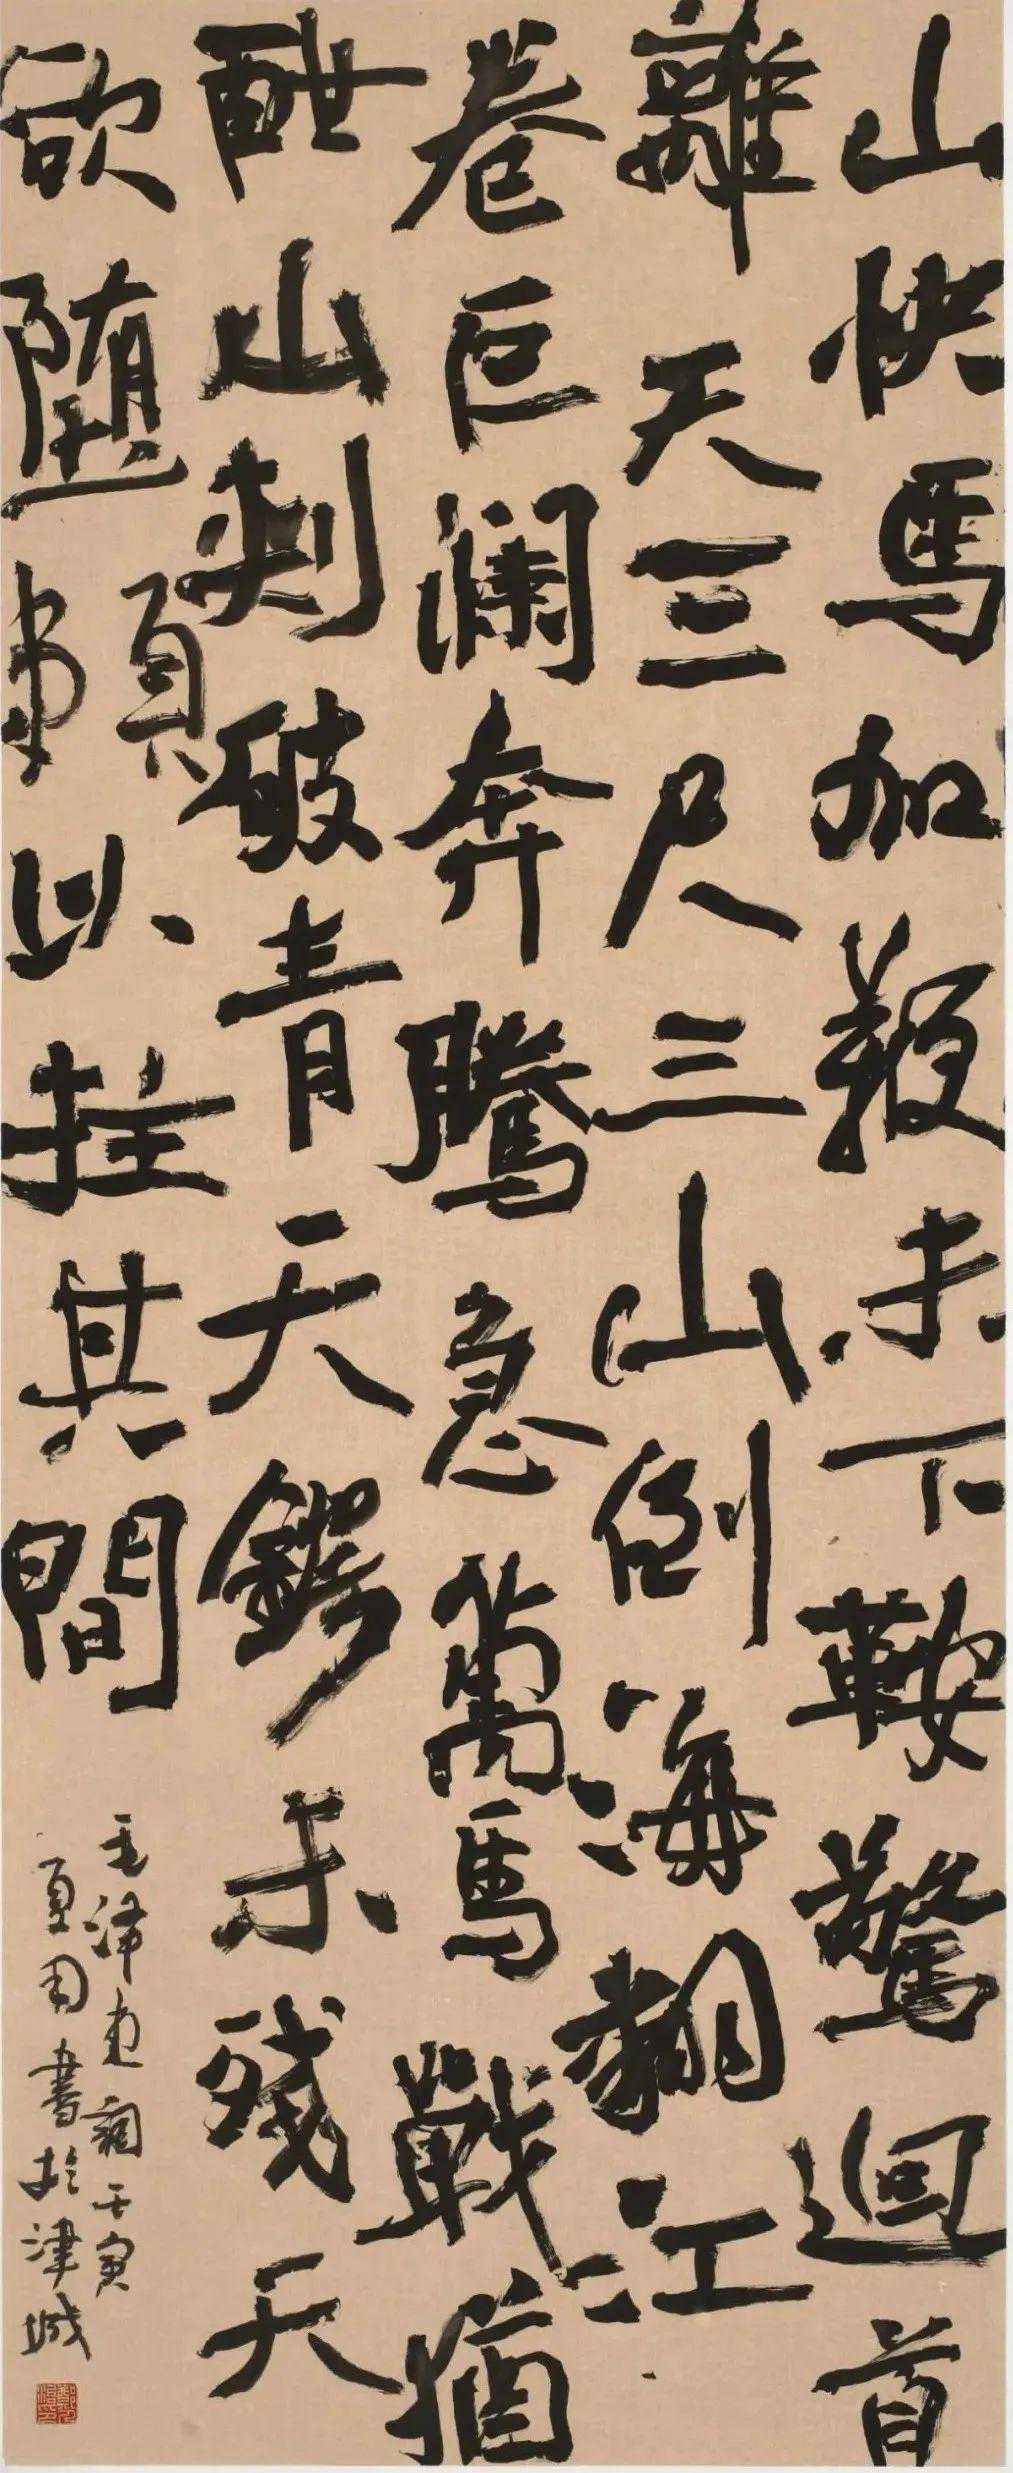 山快馬加鞭未下鞍驚迴首
離天三尺三山倒海翻江
卷巨瀾奔騰急萬馬戰猶
酣山刺破青天鍔未殘天
欲墮賴以拄其間
毛澤東詞壬寅
夏書於津城